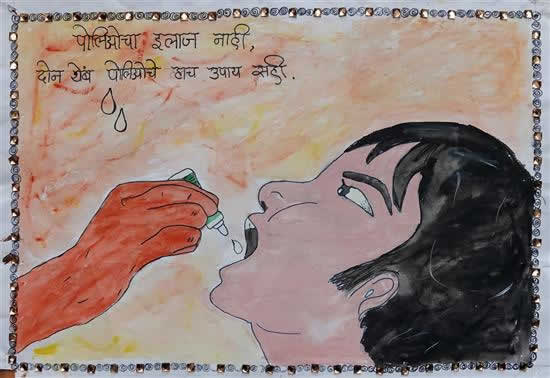 पोलिओचा इलाज नाही,
दोन थेंब पोलिओचे हाच उपाय सही.